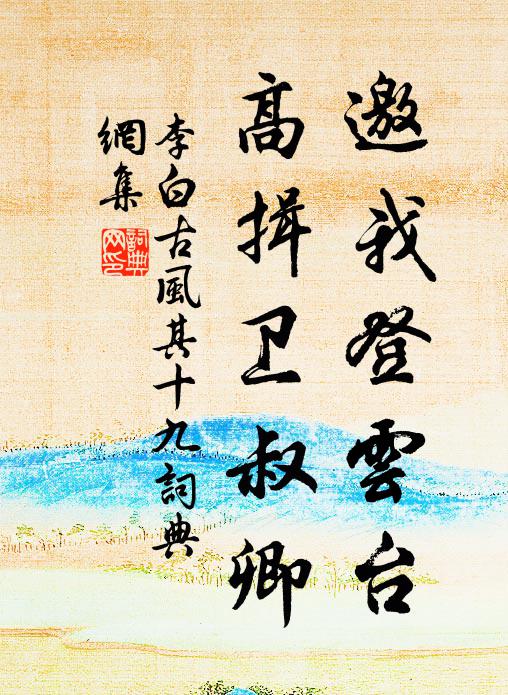 邀我登雲台
高揖卫叔卿
李白古風其十九詞典
網集
詞典
网印